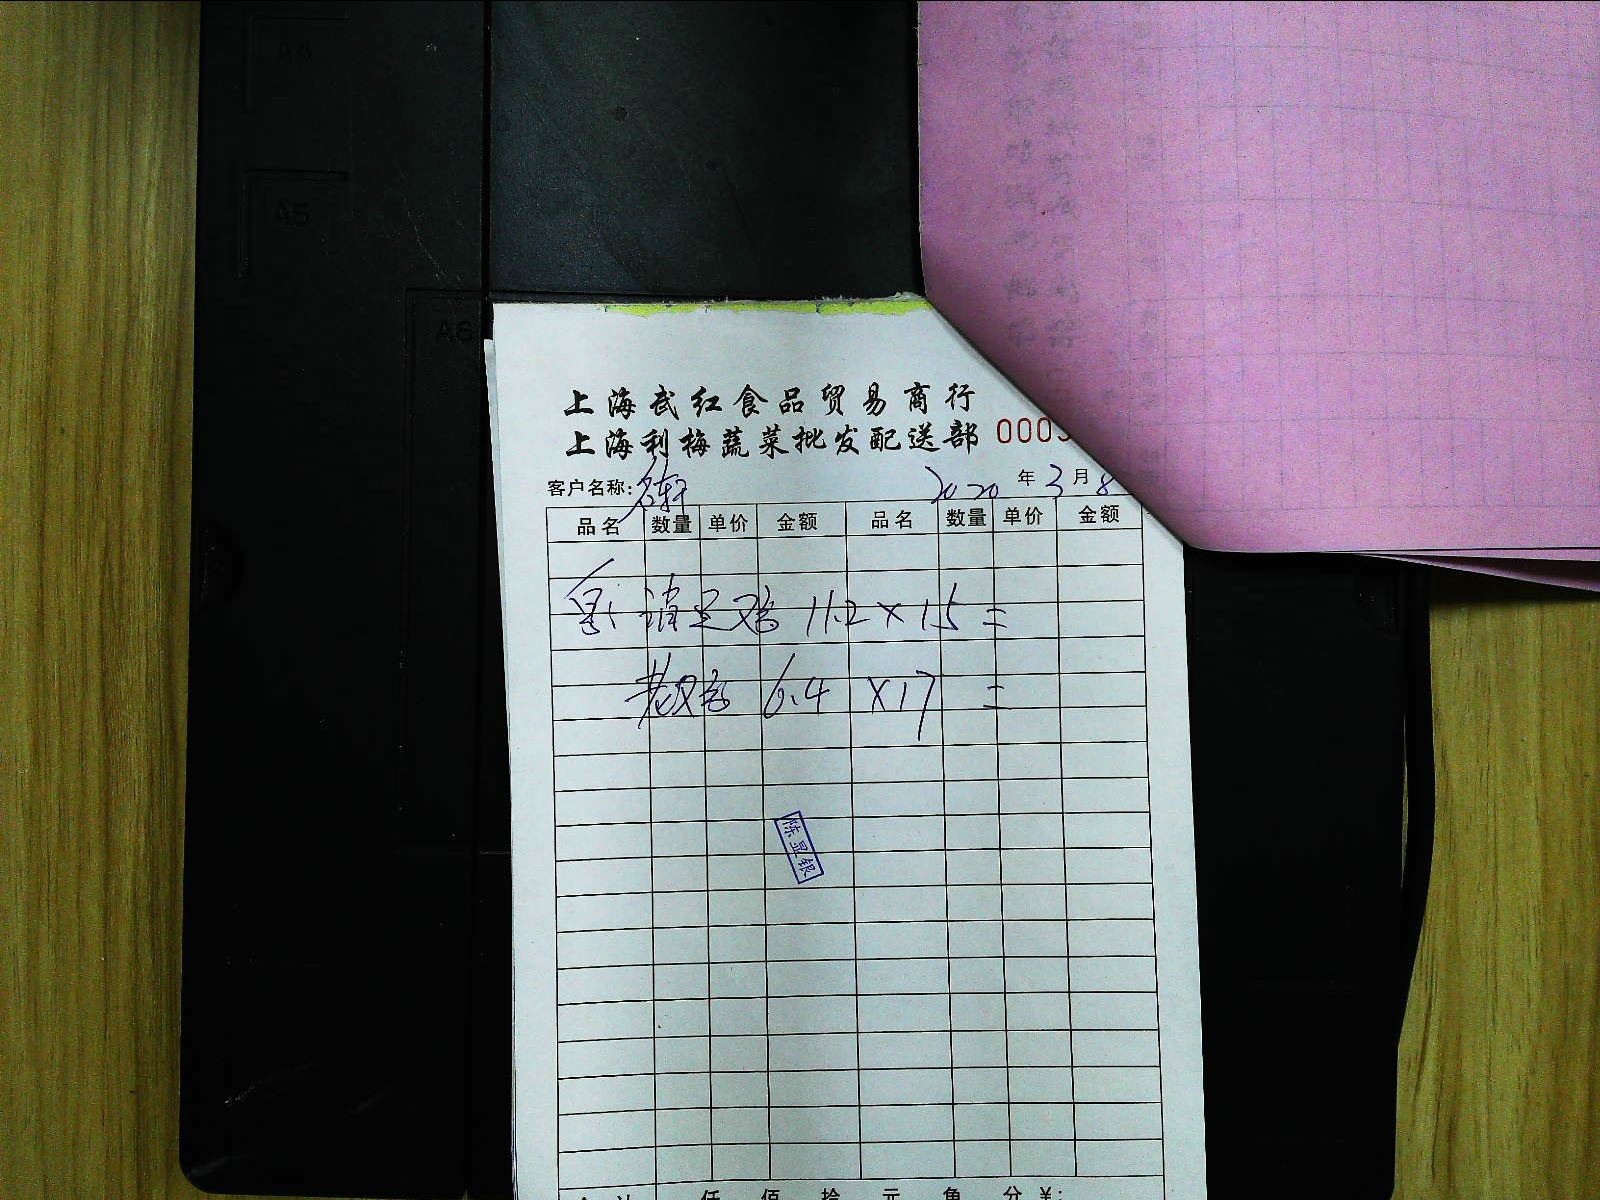 A4
A5
A6
上海武红食品贸易商行
上海利梅蔬菜批发配送部 0003
客户名称: 名轩 2020 年 3 月 8
品名 数量 单价 金额 品名 数量 单价 金额
鸡 11.2 × 15 =
老鸡 6.4 × 17 =
陈显银
合计 仟 佰 拾 元 角 分 ¥: